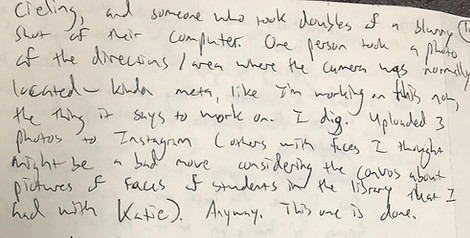 Cieling, and someone who took doubles of a blurry
shot of their computer. One person took a photo
of the directions / area where the camera was normally
located – kinda meta, like I'm working on this now,
the thing it says to work on. I dig. Uploaded 3
photos to Instagram (others with faces I thought
might be a bad move considering the convos about
pictures of faces of students in the library that I
had with Katie). Anyway. This one is done.